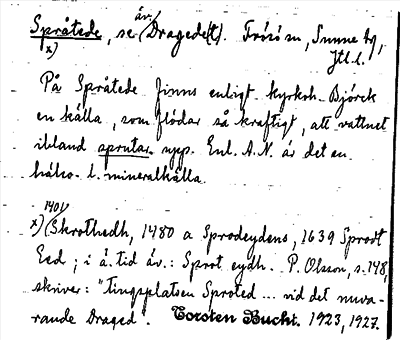 Språtede, se äv. Dragede(t). Frösö sn, Sunne tg,
x) Jtl. l.
På Språtede finns enligt kyrkoh. Björck
en källa, som flödar så kraftigt, att vattnet
ibland sprutar upp. Enl. A.N. är det en
hälso- l. mineralkälla.
1401
x) (Skrothedh, 1480 a Sprodeydene, 1639 Sprodt
Eed; i ä. tid äv.: Sprot eydh. P. Olsson, s. 148,
skriver: "Tingsplatsen Sproted ... vid det nuva-
rande Draged". Torsten Bucht. 1923, 1927.